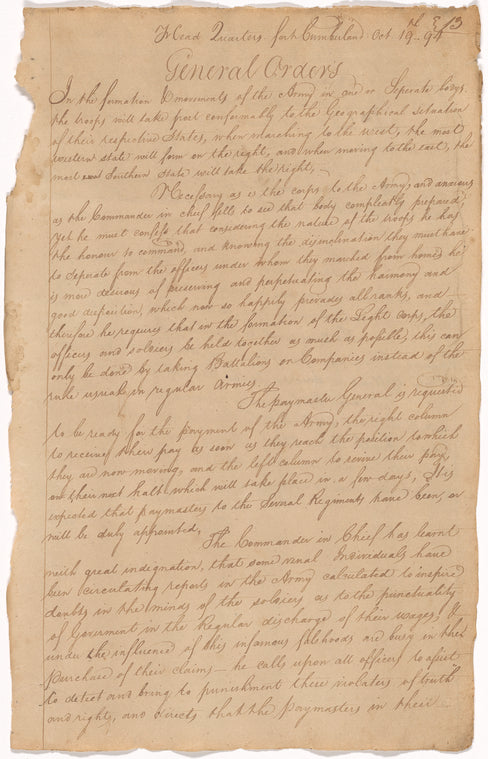 13
Head Quarters fort Cumberland Oct. 19th 94
General Orders
In the formation & movements of the Army in one or Seperate bodys
the troops will take post conformably to the Geographical situation
of their respective States, when marching to the west, the most
western state will form on the right, and when moving to the east, the
most Southern State will take the right,
Necessary as is the corps to the Army, and anxious
as the Commander in chief fells to see that body compleatly prepared,
yet he must confess that considering the nature of the troops he has
the honour to command, and knowing the disinclination they must have
to seperate from the officers under whom they marched from home, he
is more desirous of preserving and perpetuating the harmony and
good disposition, which now so happily pervades all ranks, and
therefore he requires that in the formation of the Light Corps, the
officers and soldiers be held together as much as possible, this can
only be done by taking Battalions or Companies instead of the
rule usual in regular Armies
The paymaster General is requested
to be ready for the payment of the Army, the right column
to receive their pay as soon as they reach the position to which
they are now moving, and the left column to revive their pay
on their next halt which will take place in a few days, It is
expected that paymasters to the Several Regiments have been, or
will be duly appointed,
The Commander in Chief has learnt
with great indegnation, that some venal Individuals have
been circulating reports in the Army calculated to inspire
doubts in the minds of the soldiers as to the punctuality
of Government in the Regular discharge of their wages,
under the influence of this infamous falshoods are busy in their
Purchase of their claims — he calls upon all officers to assist
to detect and bring to punishment these violaters of truth
and right, and directs that the paymasters in their